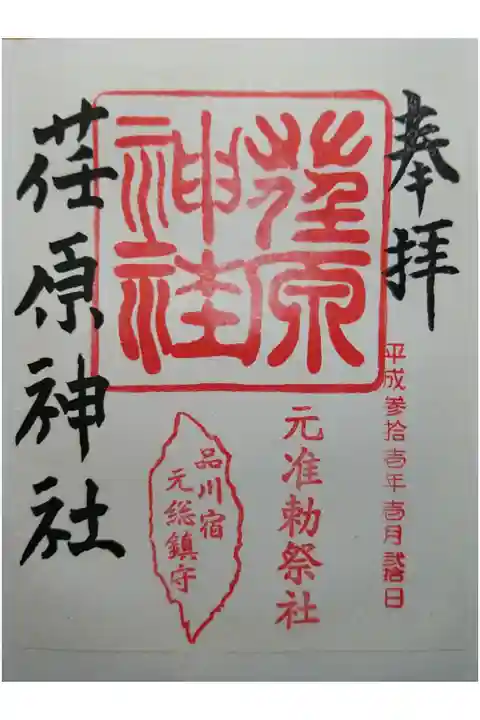 奉拝
平成参拾壱年壱月日
荏原
神社
元准勅祭社
品川宿
元総鎮守
荏原神社